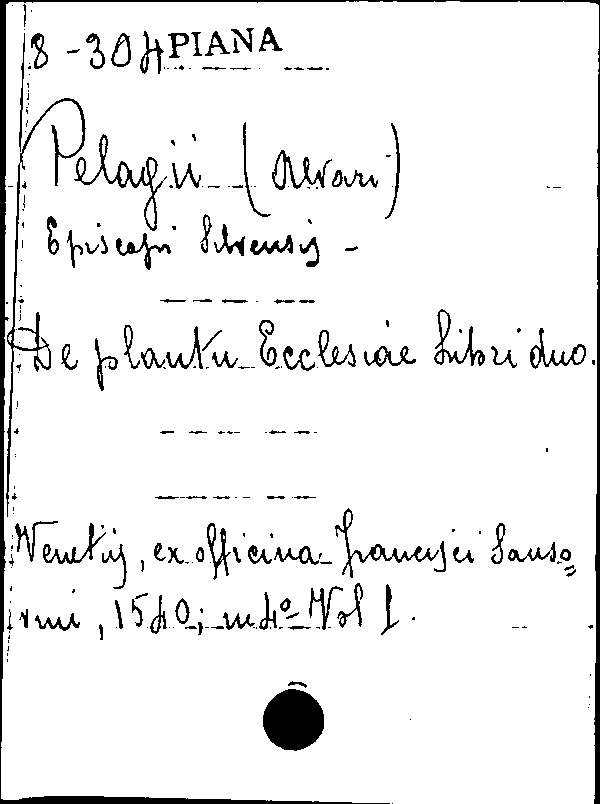 8-304 PIANA
Pelagii (Alvari)
Episcopi Silvensis -
De planctu Ecclesiae Libri duo.
Venetijs, ex officina Francisci Sanso=
vini, 1540; in 4º Vol I.